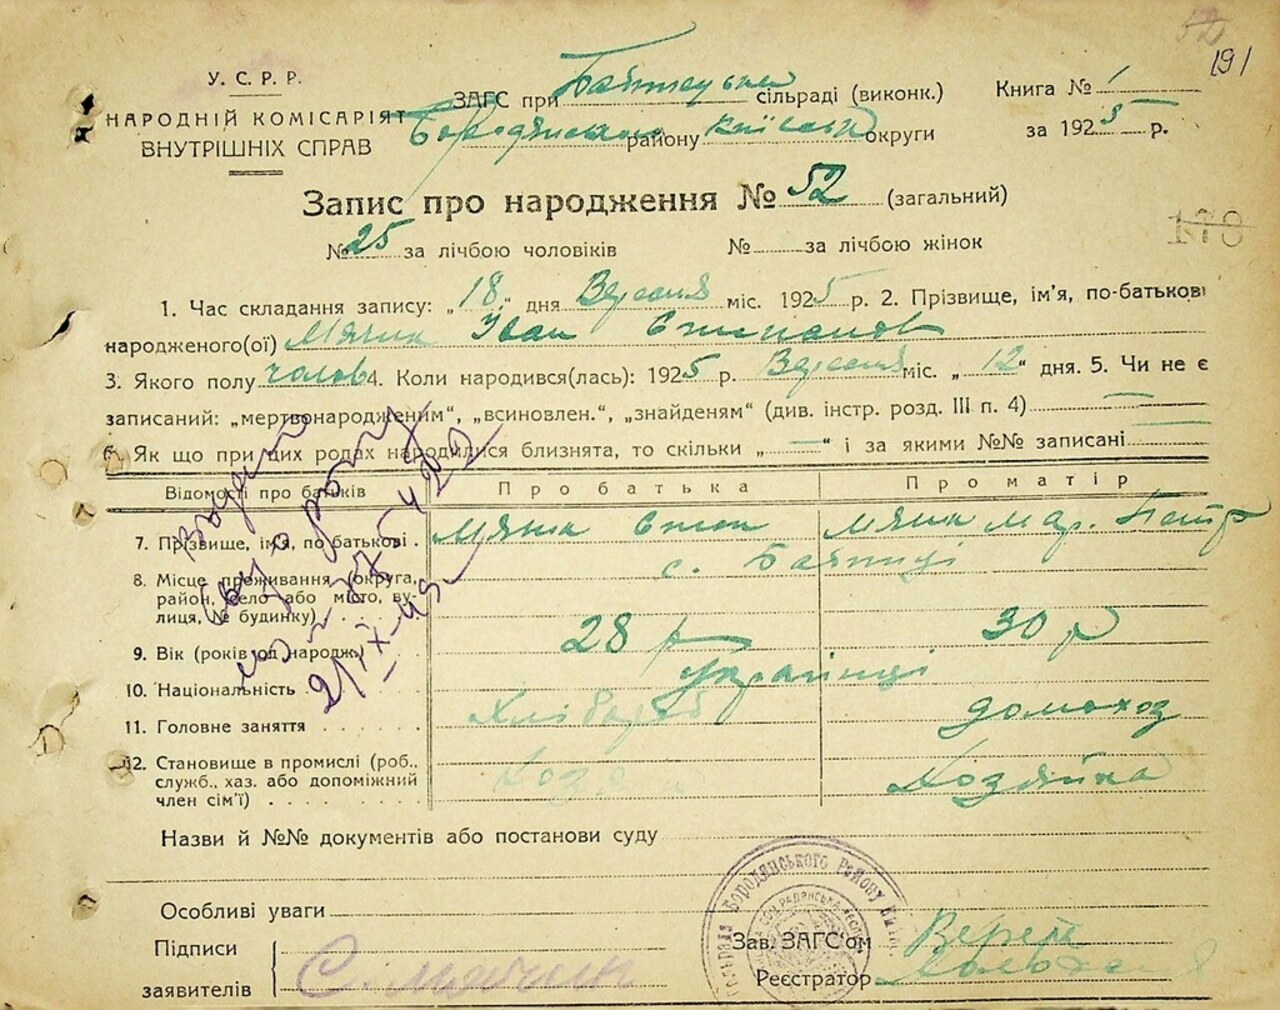 52
191
У. С. Р. Р.
НАРОДНІЙ КОМІСАРІЯТ
ВНУТРІШНІХ СПРАВ
ЗАГС при сільраді (виконк.)
Бородянського району Київськ округи
Книга № 1
за 1925 р.
Запис про народження № 52 (загальний)
№ 25 за лічбою чоловіків № за лічбою жінок
170
1. Час складання запису: „18" дня Вересня міс. 1925 р. 2. Прізвище, ім'я, по-батькові
народженого(ої) Мячик Іван Степанов
3. Якого полу чолов 4. Коли народився(лась): 1925 р. Вересня міс. „12" дня. 5. Чи не є
записаний: „мертвонародженим", „всиновлен.", „знайденям" (див. інстр. розд. III п. 4) —
6. Як що при цих родах народилися близнята, то скільки „—" і за якими №№ записані —
Відомості про батьків Про батька Про матір
7. Прізвище, ім'я, по батькові . Мячик Степ Мячик Мар. Петр
8. Місце проживання (округа, район, село або місто, вулиця, № будинку) . . . с.
9. Вік (років од народж.) 28 р 30 р
10. Національність . Українці
11. Головне заняття . . . . . . Хлібороб домоход
12. Становище в промислі (роб., служб., хаз. або допоміжний член сім'ї) . . . . . . . . Хозяїн Хозяйка
видано
21/IX-45
Назви й №№ документів або постанови суду
Особливі уваги
Підписи
заявителів С. Мячик
Бородянського Району
Зав. ЗАГС'ом
Реєстратор